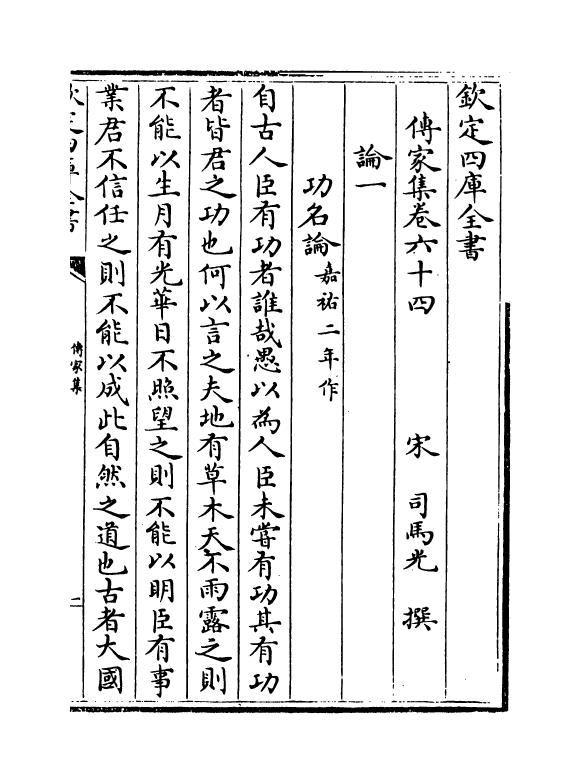 欽定四庫全書
傳家集卷六十四
宋 司馬光 撰
論一
功名論嘉祐二年作
自古人臣有功者誰哉愚以為人臣未嘗有功其有功
者皆君之功也何以言之夫地有草木天不雨露之則
不能以生月有光華日不照望之則不能以明臣有事
業君不信任之則不能以成此自然之道也古者大國
欽定四庫全書
傳家集